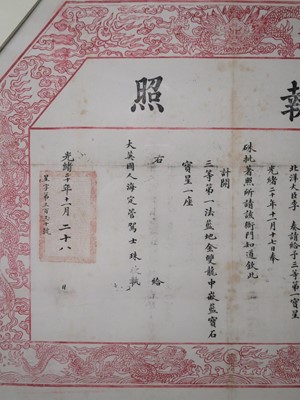 執照
北洋大臣李 奏請給予三等第一寶星
光緒二十年十月十七日奉
硃批著照所請該衙門知道欽此
計開
三等第一法藍地金雙龍中嵌藍寶石
寶星一座
右 給
大英國人海定管駕士珠 執
光緒二十年十一月二十八 日
星字第三百 號